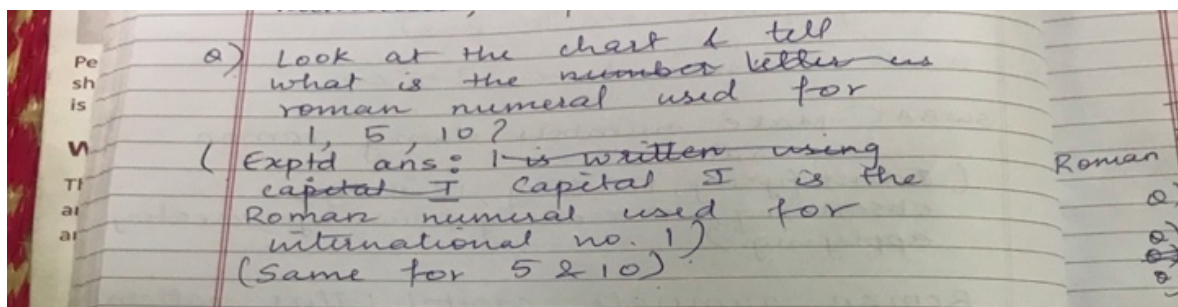 Q) Look at the chart & tell
what is the number letter us
roman numeral used for
1, 5, 10?
( Exptd ans: 1 is written using
capital I Capital I is the
Roman numeral used for
international no. 1)
(Same for 5 & 10)
Pe
sh
is
W
Th
ar
ar
Roman
Q)
Q)
Q)
Q